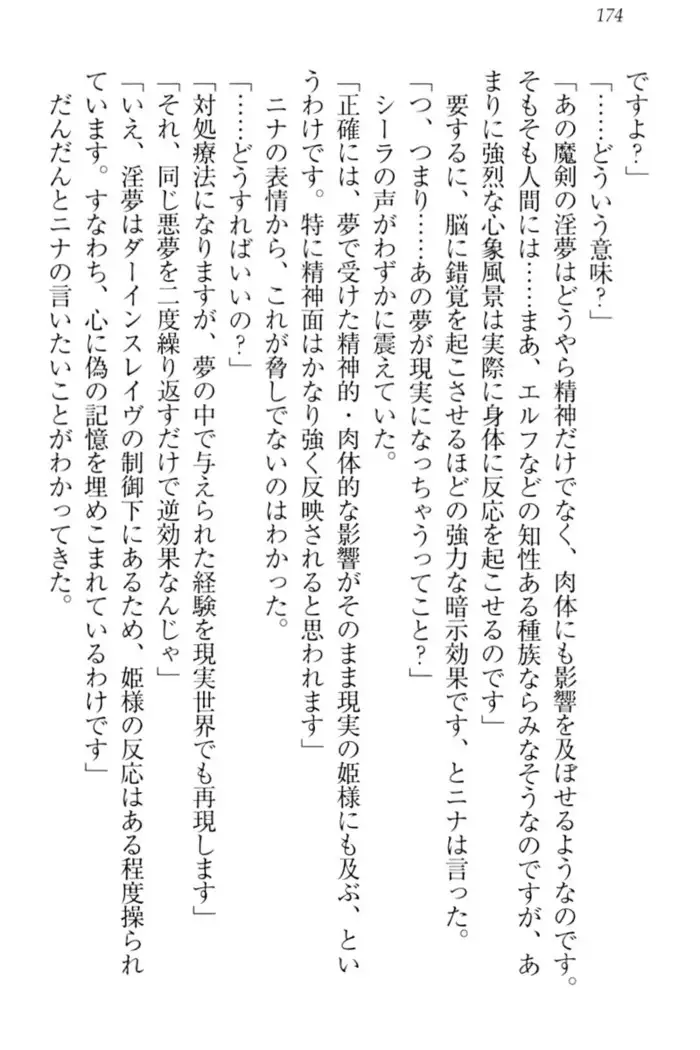 174
ですよ？」
「……どういう意味？」
「あの魔剣の淫夢はどうやら精神だけでなく、肉体にも影響を及ぼせるようなのです。
そもそも人間には……まあ、エルフなどの知性ある種族ならみなそうなのですが、あ
まりに強烈な心象風景は実際に身体に反応を起こせるのです」
要するに、脳に錯覚を起こさせるほどの強力な暗示効果です、とニナは言った。
「つ、つまり……あの夢が現実になっちゃうってこと？」
シーラの声がわずかに震えていた。
「正確には、夢で受けた精神的・肉体的な影響がそのまま現実の姫様にも及ぶ、とい
うわけです。特に精神面はかなり強く反映されると思われます」
ニナの表情から、これが脅しでないのはわかった。
「……どうすればいいの？」
「対処療法になりますが、夢の中で与えられた経験を現実世界でも再現します」
「それ、同じ悪夢を二度繰り返すだけで逆効果なんじゃ」
「いえ、淫夢はダーインスレイヴの制御下にあるため、姫様の反応はある程度操られ
ています。すなわち、心に偽の記憶を埋めこまれているわけです」
だんだんとニナの言いたいことがわかってきた。